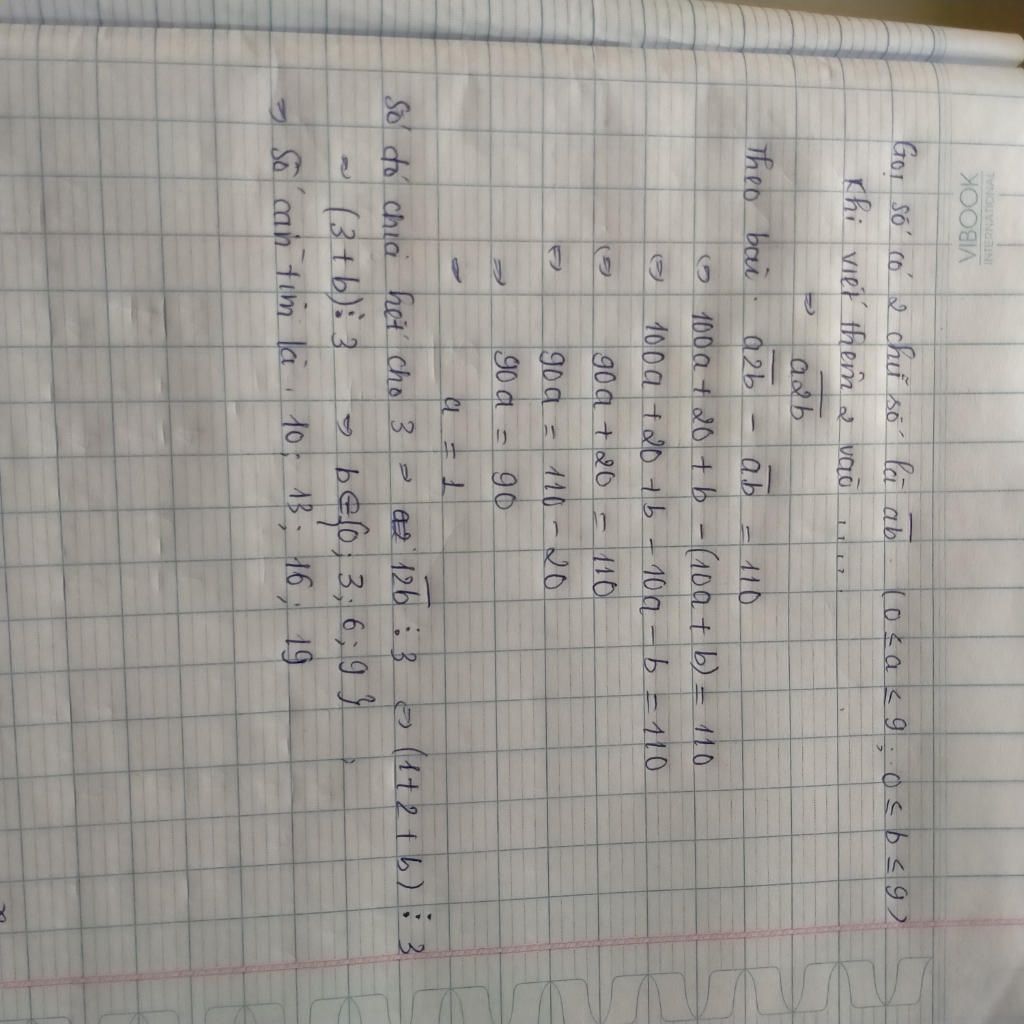 VIBOOK
INTERNATIONAL
Gọi số có 2 chữ số là ab. (0 ≤ a ≤ 9; 0 ≤ b ≤ 9)
Khi viết thêm 2 vào .....
⇒ a2b
Theo bài. a2b - ab = 110
⇔ 100a + 20 + b - (10a + b) = 110
⇔ 100a + 20 + b - 10a - b = 110
⇔ 90a + 20 = 110
⇔ 90a = 110 - 20
⇒ 90a = 90
⇒ a = 1
Số đó chia hết cho 3 ⇒ 12b ⋮ 3 ⇒ (1+2+b) ⋮ 3
⇒ (3+b) ⋮ 3 ⇒ b ∈ {0; 3; 6; 9}
⇒ Số cần tìm là. 10; 13; 16; 19